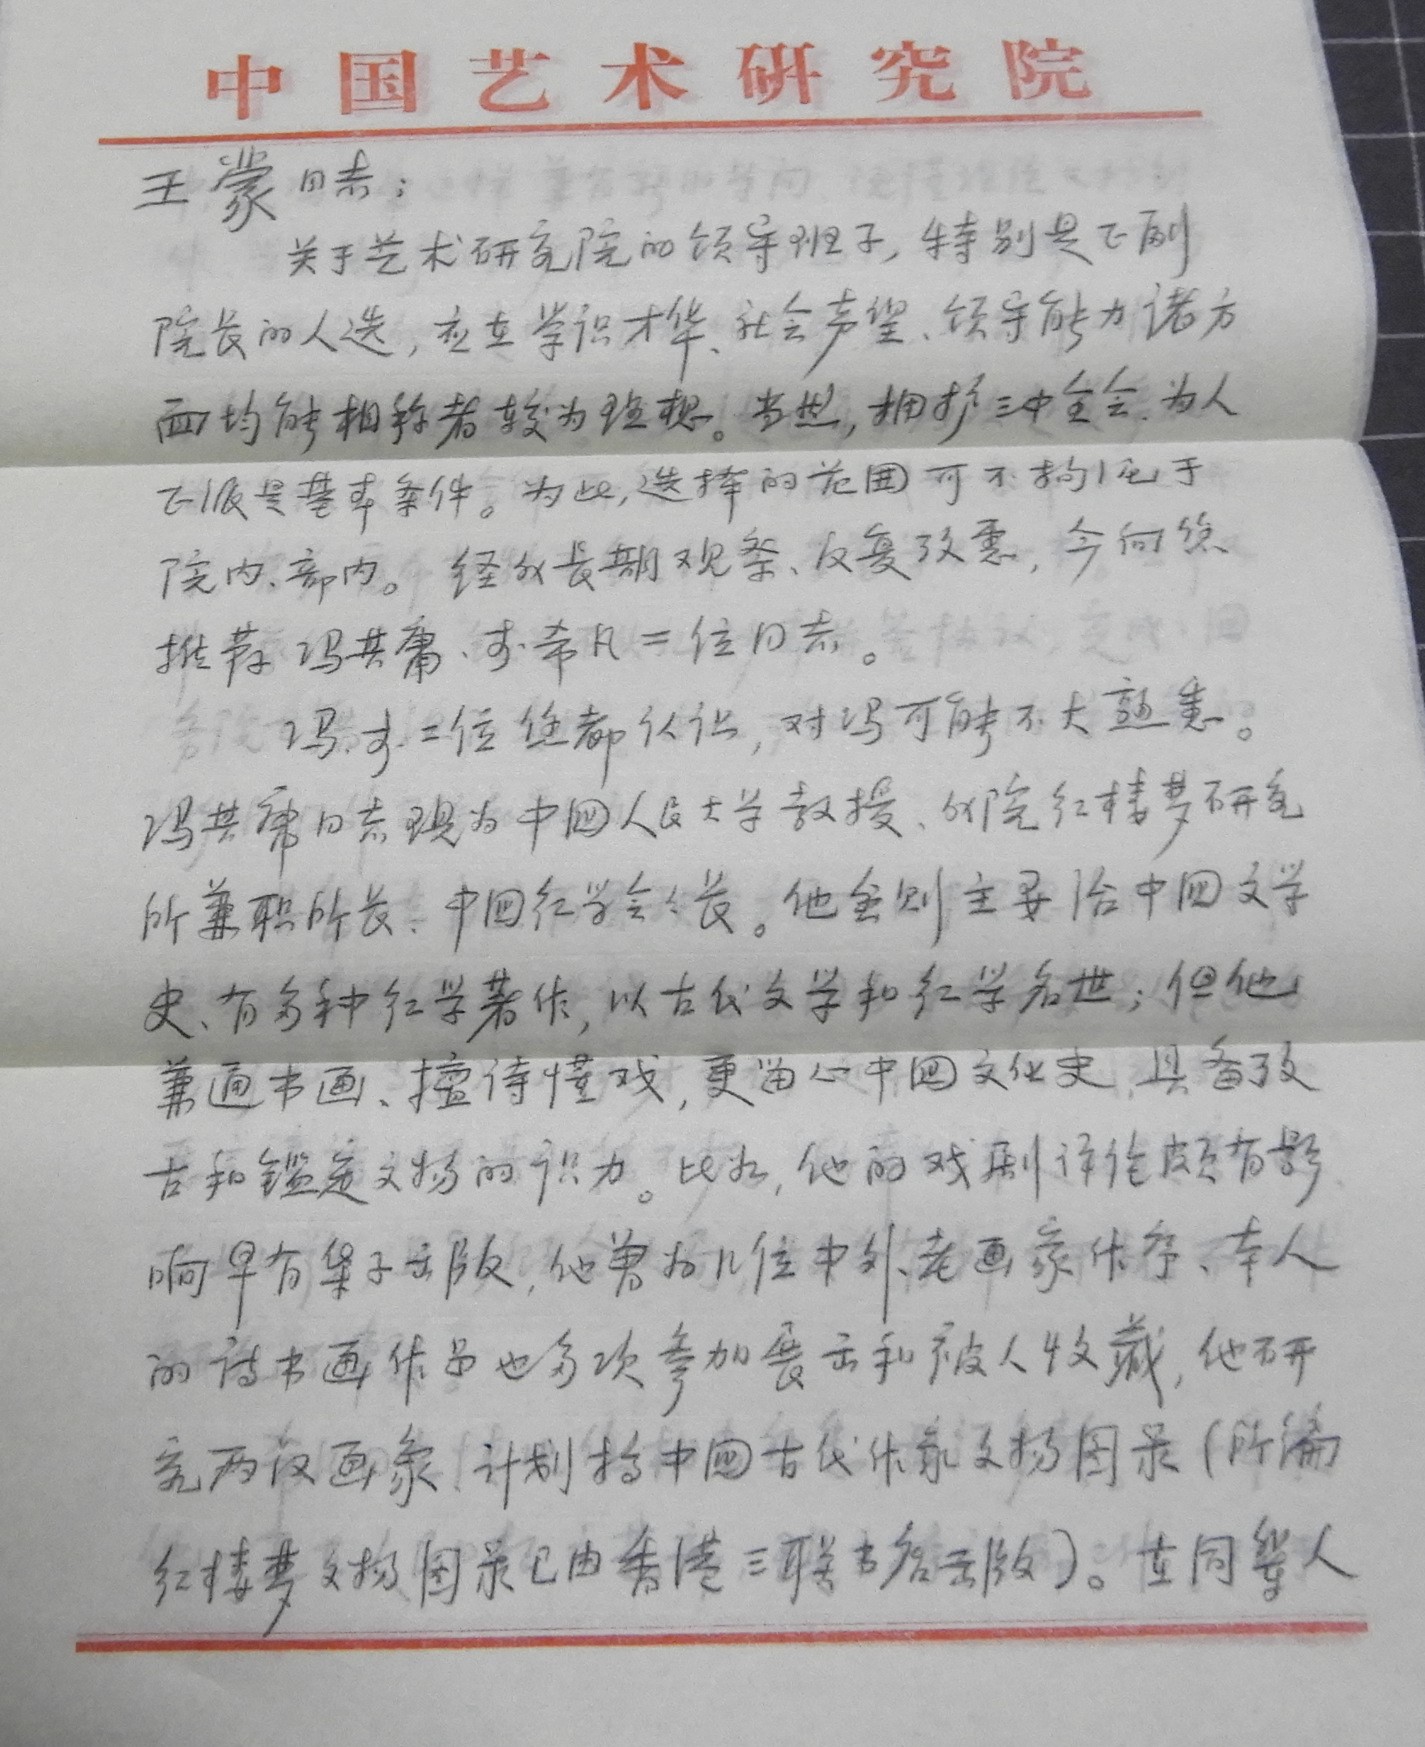 中国艺术研究院
王蒙同志：
关于艺术研究院的领导班子，特别是正副
院长的人选，应在学识才华、社会声望、领导能力诸方
面均能相称者较为理想。当然，拥护三中全会、为人
正派是基本条件。为此，选择的范围可不拘泥于
院内、部内。经过长期观察、反复考虑，今向您
推荐冯其庸、李希凡二位同志。
冯、李二位您都认识，对冯可能不大熟悉。
冯其庸同志现为中国人民大学教授、我院红楼梦研究
所兼职所长、中国红学会会长。他虽则主要治中国文学
史、有多种红学著作，以古代文学和红学名世；但他
兼通书画、擅诗懂戏，更留心中国文化史，具备考
古和鉴定文物的识力。比如，他的戏剧评论颇有影
响早有集子出版，他曾为几位中外老画家作序、本人
的诗书画作品也多次参加展出和被人收藏，他研
究两汉画象、计划搞中国古代作家文物图录（所编
红楼梦文物图录已由香港三联书店出版）。在同辈人